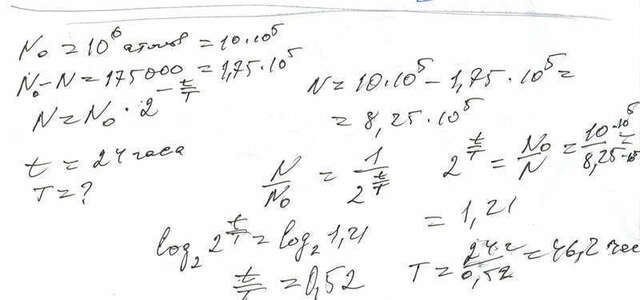 N₀ = 10⁶ атомов = 10·10⁵
N₀-N = 175000 = 1,75·10⁵
N = N₀ · 2^(-t/T)
t = 24 часа
T = ?
N = 10·10⁵ - 1,75·10⁵ =
= 8,25·10⁵
N/N₀ = 1/2^(t/T)
2^(t/T) = N₀/N = 10·10⁵/8,25·10⁵ =
= 1,21
log₂ 2^(t/T) = log₂ 1,21
t/T = 0,52
T = 24 ч/0,52 = 46,2 час